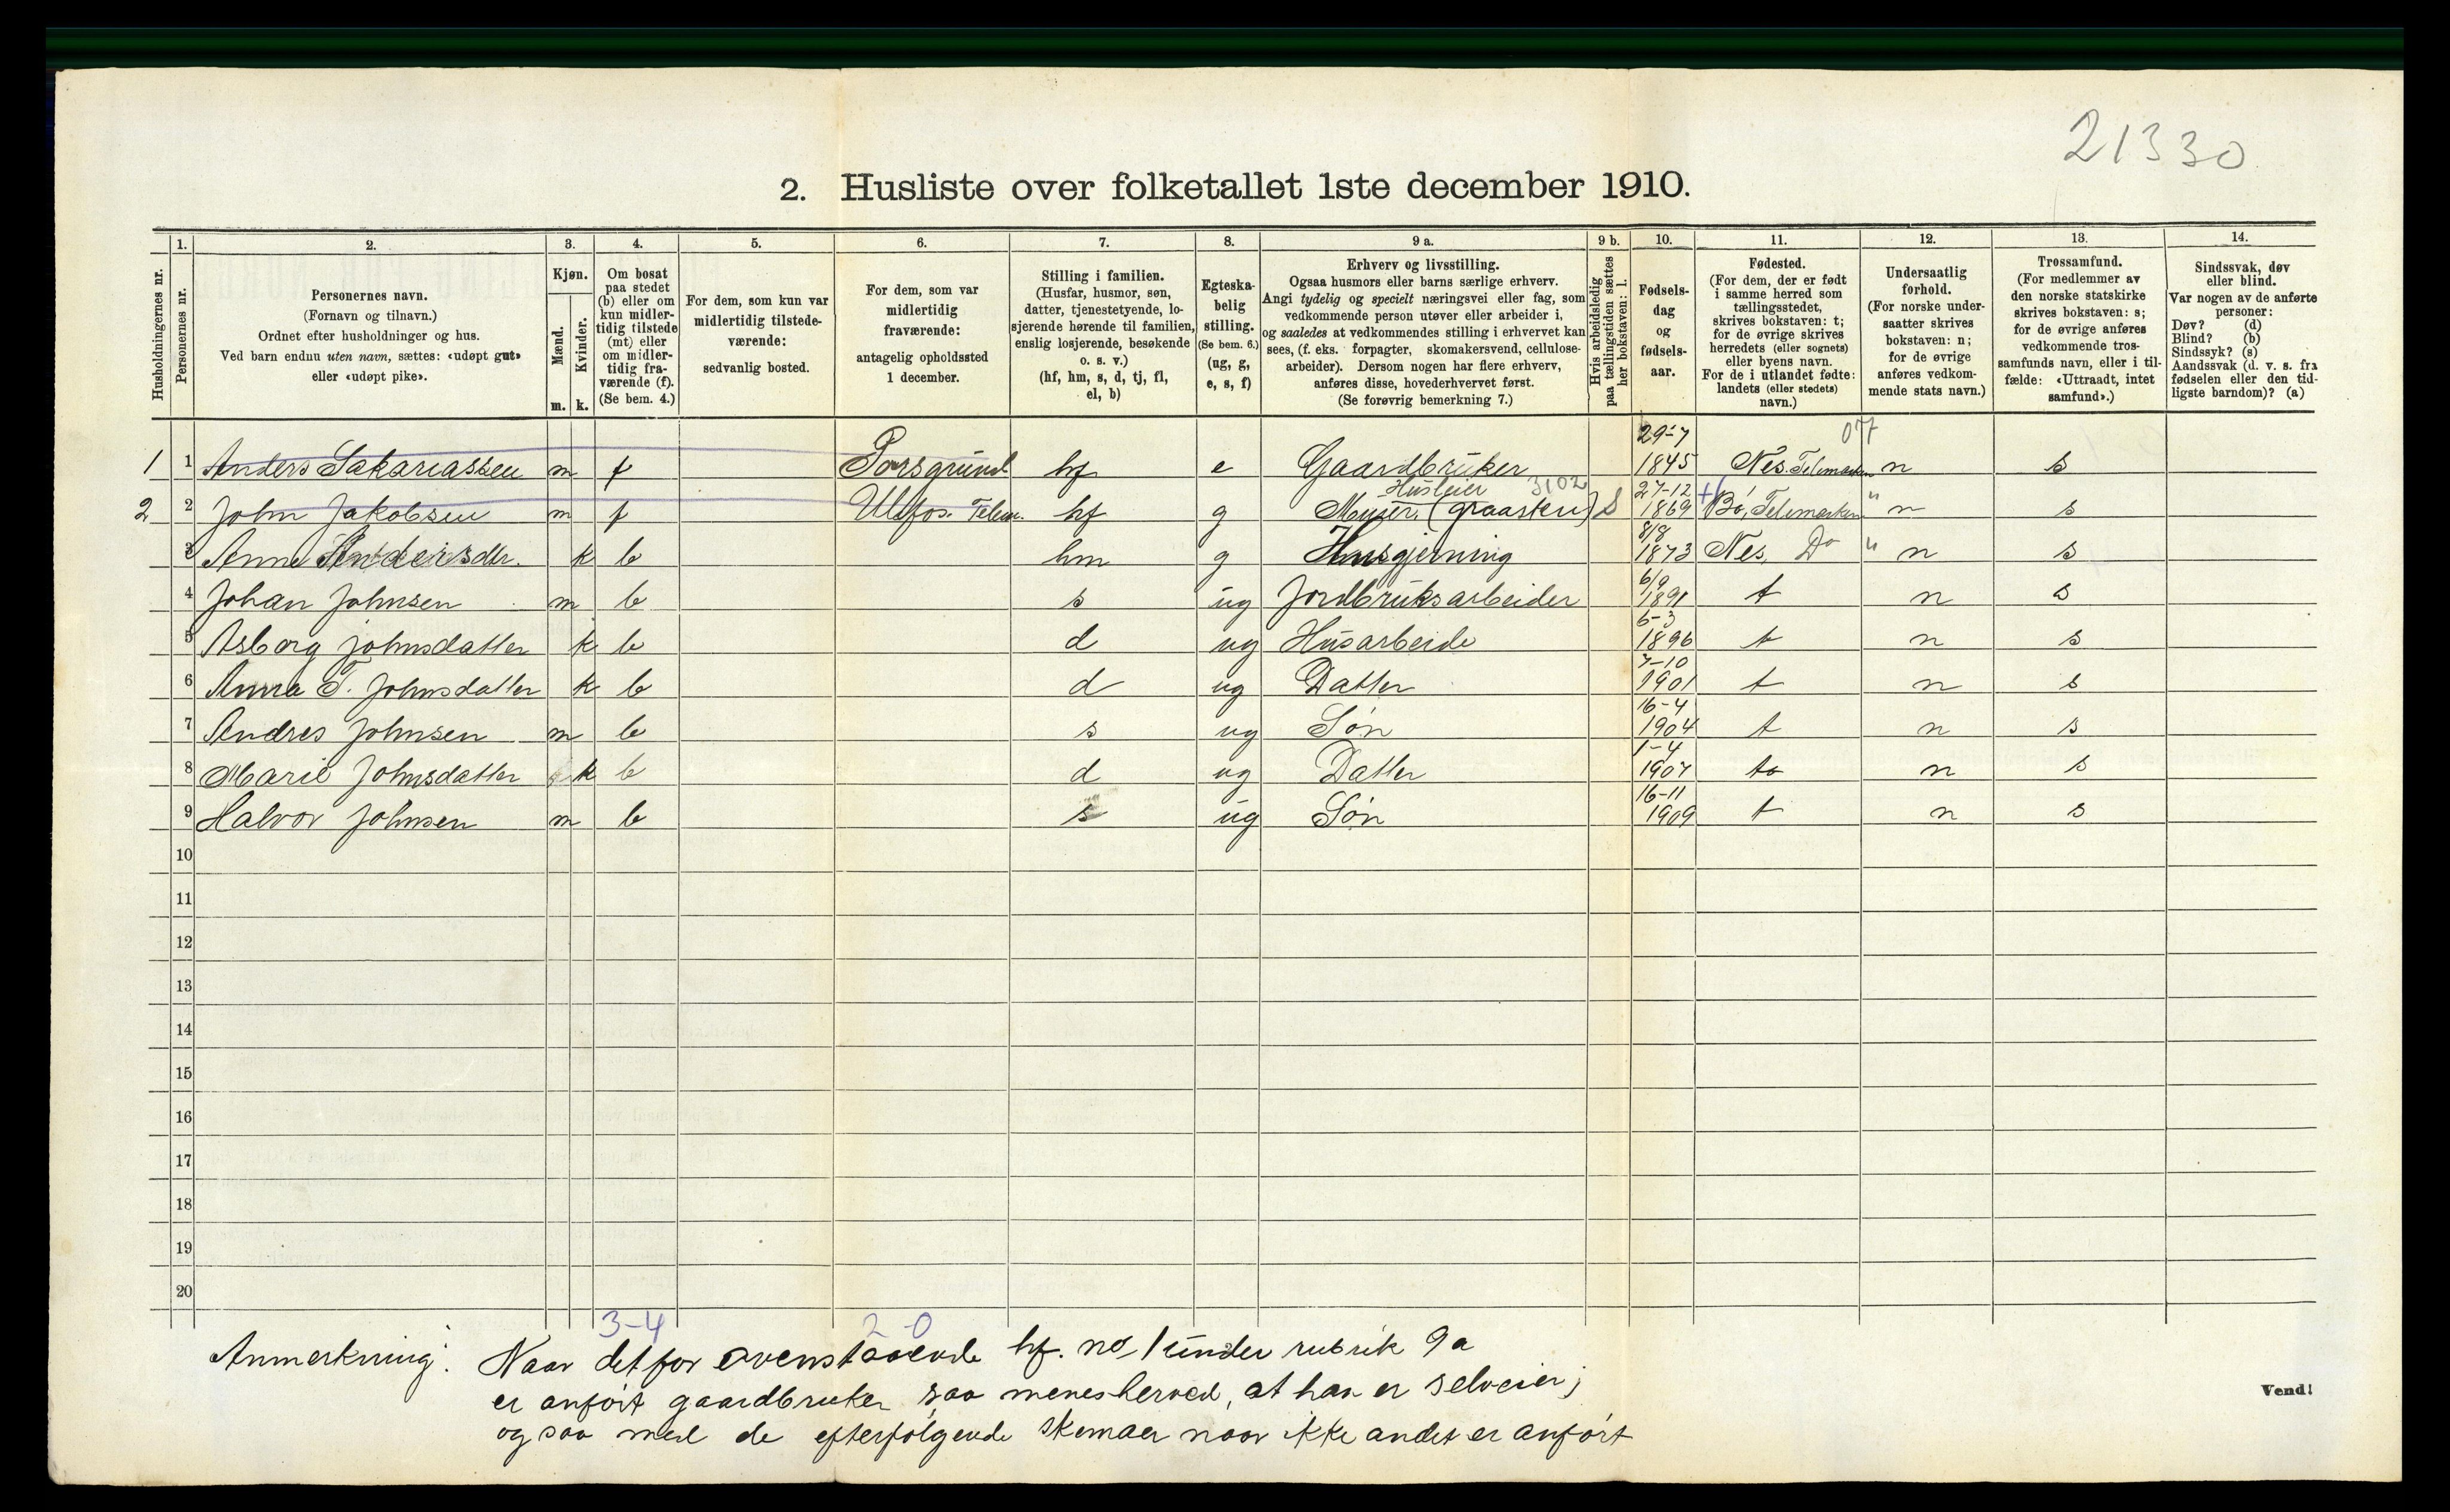 21330
2. Husliste over folketallet 1ste december 1910.
Husholdningernes nr.
1. Personernes nr.
2. Personernes navn. (Fornavn og tilnavn.) Ordnet efter husholdninger og hus. Ved barn endnu uten navn, sættes: «udøpt gut» eller «udøpt pike».
3. Kjøn. Mænd. m. Kvinder. k.
4. Om bosat paa stedet (b) eller om kun midlertidig tilstede (mt) eller om midlertidig fraværende (f). (Se bem. 4.)
5. For dem, som kun var midlertidig tilstedeværende: sedvanlig bosted.
6. For dem, som var midlertidig fraværende: antagelig opholdssted 1 december.
7. Stilling i familien. (Husfar, husmor, søn, datter, tjenestetyende, losjerende hørende til familien, enslig losjerende, besøkende o. s. v.) (hf, hm, s, d, tj, fl, el, b)
8. Egteskabelig stilling. (Se bem. 6.) (ug, g, e, s, f)
9 a. Erhverv og livsstilling. Ogsaa husmors eller barns særlige erhverv. Angi tydelig og specielt næringsvei eller fag, som vedkommende person utøver eller arbeider i, og saaledes at vedkommendes stilling i erhvervet kan sees, (f. eks. forpagter, skomakersvend, cellulosearbeider). Dersom nogen har flere erhverv, anføres disse, hovederhvervet først. (Se forøvrig bemerkning 7.)
9 b. Hvis arbeidsledig paa tællingstiden sættes her bokstaven: l.
10. Fødselsdag og fødselsaar.
11. Fødested. (For dem, der er født i samme herred som tællingsstedet, skrives bokstaven: t; for de øvrige skrives herredets (eller sognets) eller byens navn. For de i utlandet fødte: landets (eller stedets) navn.)
12. Undersaatlig forhold. (For norske undersaatter skrives bokstaven: n; for de øvrige anføres vedkommende stats navn.)
13. Trossamfund. (For medlemmer av den norske statskirke skrives bokstaven: s; for de øvrige anføres vedkommende trossamfunds navn, eller i tilfælde: «Uttraadt, intet samfund».)
14. Sindssvak, døv eller blind. Var nogen av de anførte personer: Døv? (d) Blind? (b) Sindssyk? (s) Aandssvak (d. v. s. fra fødselen eller den tidligste barndom)? (a)
1 1 Anders Sakariassen m f Porsgrund hf e Gaardbruker 29-7 1845 Nes. Telemarken n s
2 2 John Jakobsen m f Ulefos. Telem. hf g Husleier 3102 Murer. (graasten) S 27-12 1869 Bö, Telemarken " n s
3 Anne Andersdtr. k b hm g Husgjerning 8/8 1873 Nes, Do " n s
4 Johan Johnsen m b s ug Jordbruksarbeider 6/9 1891 t n s
5 Asborg Johnsdatter k b d ug Husarbeide 6-3 1896 t n s
6 Anna T. Johnsdatter k b d ug Datter 7-10 1901 t n s
7 Andres Johnsen m b s ug Søn 16-4 1904 t n s
8 Marie Johnsdatter k b d ug Datter 1-4 1907 t n s
9 Halvor Johnsen m b s ug Søn 16-11 1909 t n s
10
11
12
13
14
15
16
17
18
19
20
3-4 2-0
Anmerkning: Naar det for ovenstaaende hf. no 1 under rubrik 9a
er anført gaardbruker, saa menes herved, at han er selveier;
og saa med de efterfølgende skemaer naar ikke andet er anført
Vend!